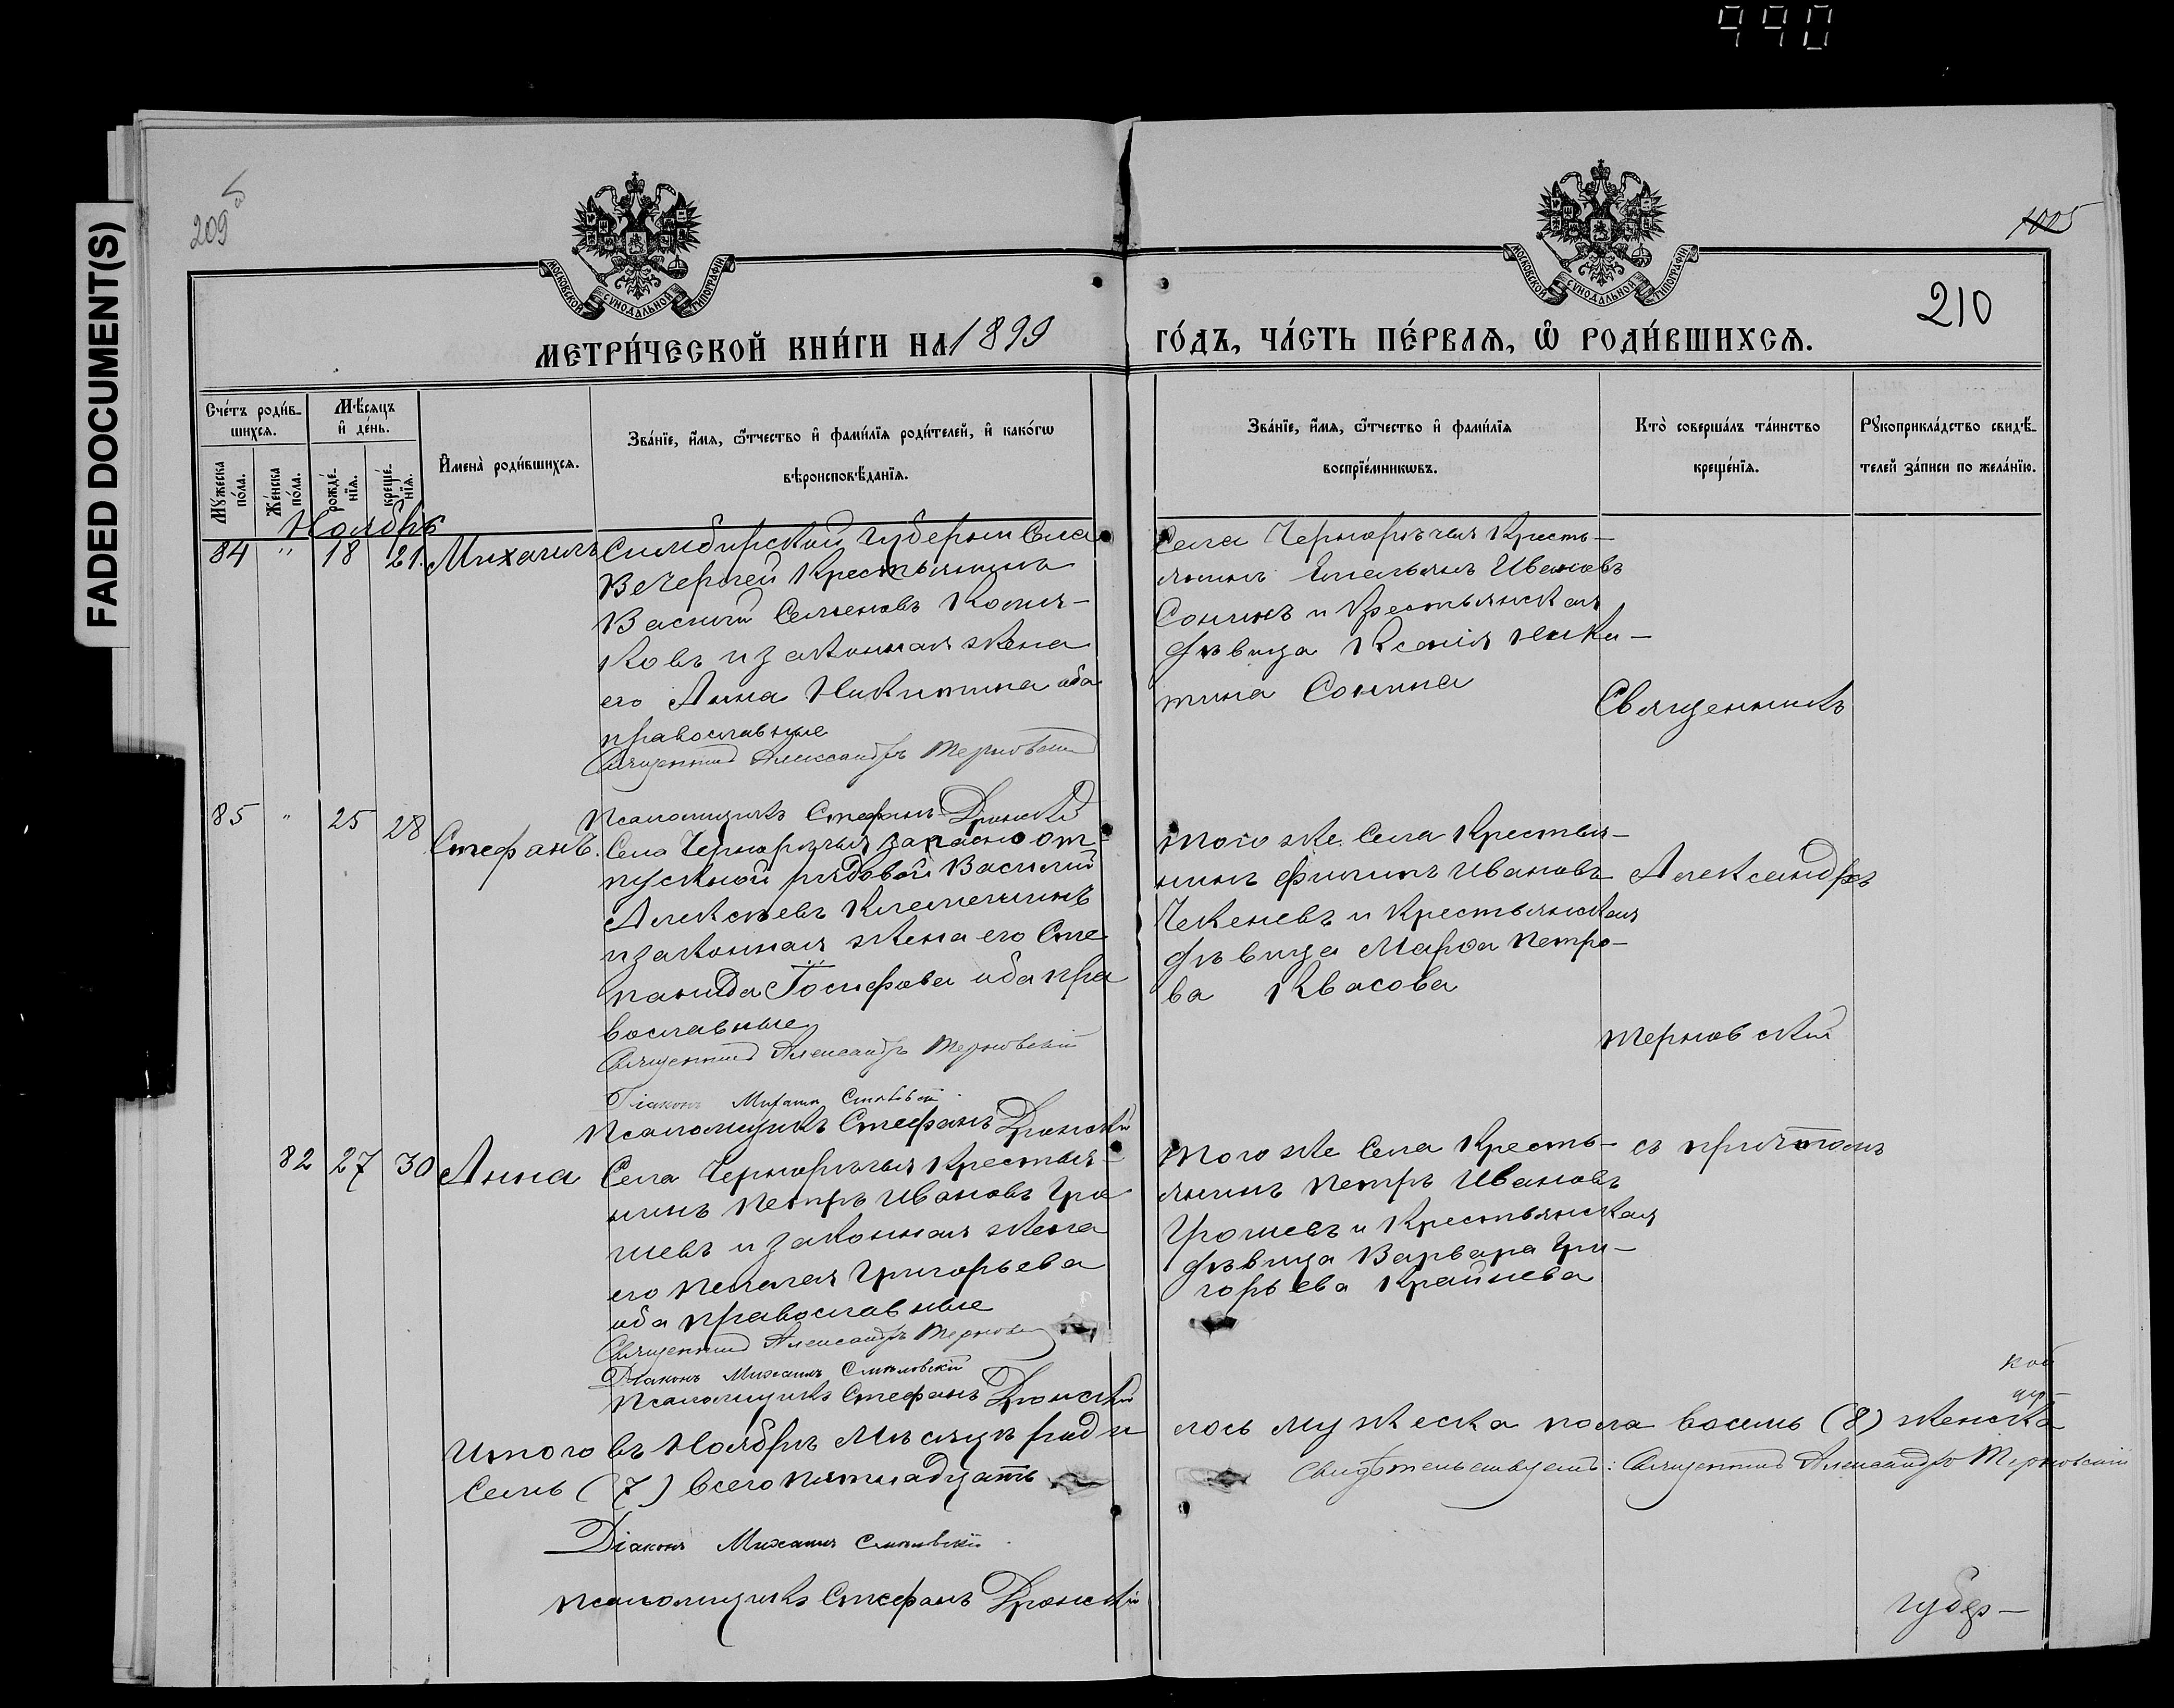 990
FADED DOCUMENT(S)
209
1005
210
МОСКОВСКОЙ СѴНОДАЛЬНОЙ ТИПОГРАФІИ
МОСКОВСКОЙ СѴНОДАЛЬНОЙ ТИПОГРАФІИ
МЕТРИ́ЧЕСКОЙ КНИ́ГИ НА 1899
ГО́ДЪ, ЧА́СТЬ ПЕ́РВАѦ, Ѡ҆ РОДИ́ВШИХСѦ.
Сче́тъ роди́в-
шихсѧ.
Мѣ́сѧцъ
и҆ де́нь.
Мꙋ́жеска по́ла.
Же́нска по́ла.
рожде́-нїѧ.
креще́-нїѧ.
И҆мена̀ роди́вшихсѧ.
Зва́нїе, и҆́мѧ, ѻ҆́тчество и҆ фами́лїѧ роди́телей, и҆ како́гѡ
вѣроисповѣ́данїѧ.
Зва́нїе, и҆́мѧ, ѻ҆́тчество и҆ фами́лїѧ
воспрїе́мникѡвъ.
Кто̀ соверша́лъ та́инство
креще́нїѧ.
Рꙋкоприкла́дство свидѣ́-
телей за́писи по жела́нїю.
Ноябрь
84 " 18 21. Михаилъ
Симбирской Губерніи Села
Вечерлей Крестьянинъ
Василій Семеновъ
ковъ и законная жена
его Анна Никитина оба
православные
Священникъ Александръ Терновскій
Псаломщикъ Стефанъ
Села Чернорѣчья Кресть-
янинъ Емельянъ Ивановъ
Сонинъ и Крестьянская
дѣвица Ксенія Ники-
тина Сонина
Священникъ
85 " 25 28 Стефанъ.
Села Чернорѣчья запасно от-
пускной рядовой Василій
Алексѣевъ Клемешинъ
и законная жена его Сте
панида Іосифова оба пра
вославные
Священникъ Александръ Терновскій
Діаконъ Михаилъ
Псаломщикъ Стефанъ
того же Села Крестья-
нинъ Филипъ Ивановъ
Чекеневъ и Крестьянская
дѣвица Марѳа Петро-
ва Квасова
Александръ
Терновскій
82 27 30 Анна
Села Чернорѣчья Крестья-
нинъ Петръ Ивановъ Гро
шевъ и законная жена
его Пелагея Григорьева
оба православные
Священникъ Александръ Терновскій
Діаконъ Михаилъ
Псаломщикъ Стефанъ
того же Села Кресть-
янинъ Петръ Ивановъ
Грошевъ и Крестьянская
дѣвица Варвара Гри-
горьева Крайнева
съ причтомъ
Итого въ Ноябрѣ Мѣсяцѣ роди
лось мужеска пола восемь (8) женска
Семь (7) всего пятнадцать
Свидѣтельствуемъ: Священникъ Александръ Терновскій
Діаконъ Михаилъ
Псаломщикъ Стефанъ
кой
губер-